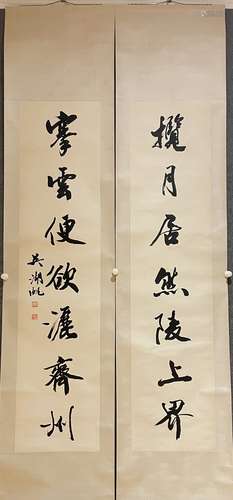 攬月居然陵上界
搴雲便欲灑齊州
吳湖帆